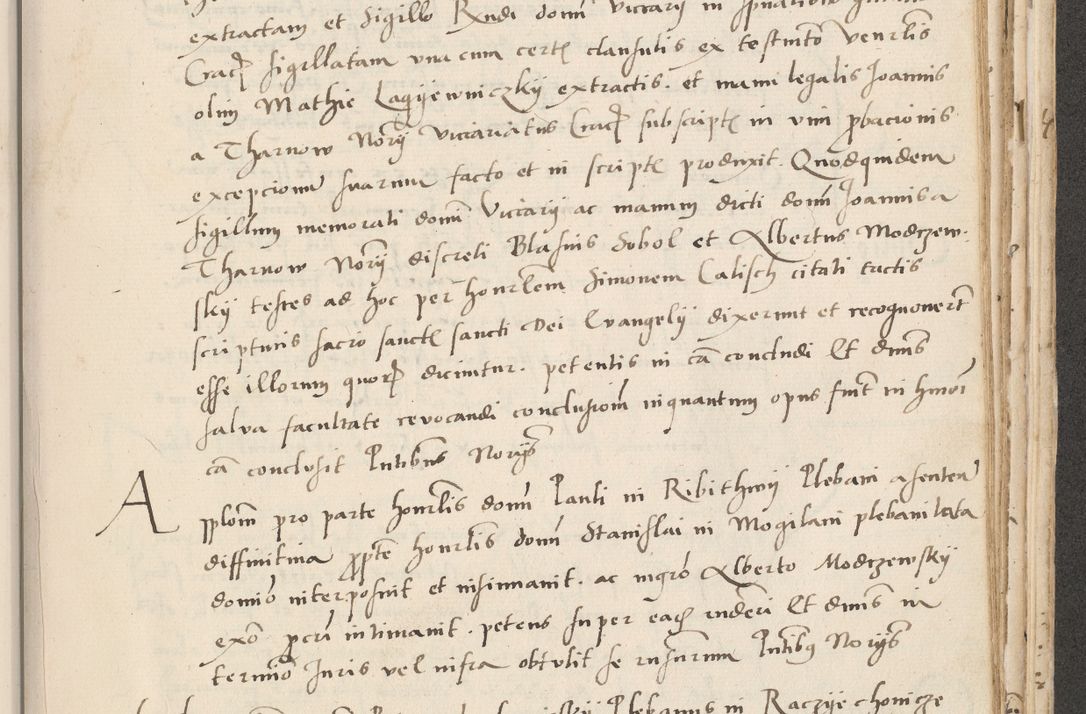 extractam et sigillo Rndi domi vicarij in spualibus
Crac sigillatam una cum certis clausulis ex testmto venrlis
olim Mathie Lagijewniczkij extractis. et manu legalis Joannis
a Tharnow Norij vicariatus Crac subscriptis in vim pbacionis
excepcionum suarum facto et in scriptis produxit. Quodquidem
sigillum memorati domi Vicarij ac manum dicti domi Joannis a
Tharnow Norij discreti Blasius Sobol et Albertus Modrzew-
skij testes ad hoc per honrlem Simonem Calisch citati tactis
scripturis sacro sanctis sancti Dei Evangelij dixerunt et recognoverunt
esse illorum quorum dicuntur. petentis in ca concludi Et dnus
salva facultate revocandi conclusiom inquantum opus fuit in hmoi
ca conclusit Pntibus Norijs
Applom pro parte honrlis domi Pauli in Ribithwij Plebani a senten
diffinitiva ppte honrlis domi Stanislai in Mogilani plebani lata
domio interposuit et insinuavit. ac mgro Alberto Modrzewskij
exo. pcri intimavit. petens super ea rnderi Et dnus in
termio Juris vel infra obtulit se rnsurum Pntibus Norijs
Plebanus in Raczijechonicze